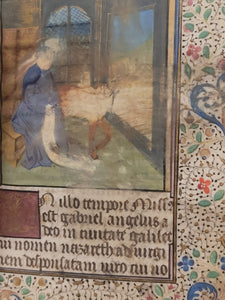 N illo tempore Miss
est gabriel angelus a
deo in ciuitate galilee
cui nomen nazareth ad uirgi
nem desponsatam uiro cui no